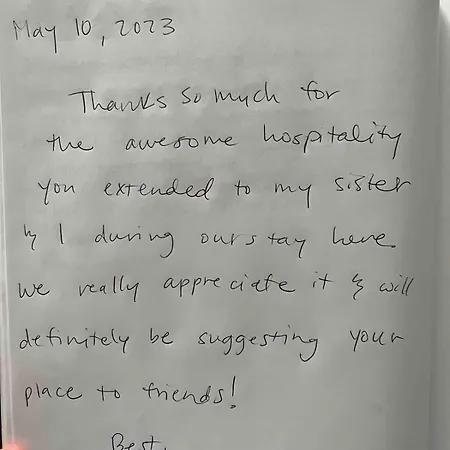 May 10, 2023
Thanks so much for
the awesome hospitality
you extended to my sister
& I during our stay here.
We really appreciate it & will
definitely be suggesting your
place to friends!
Best,